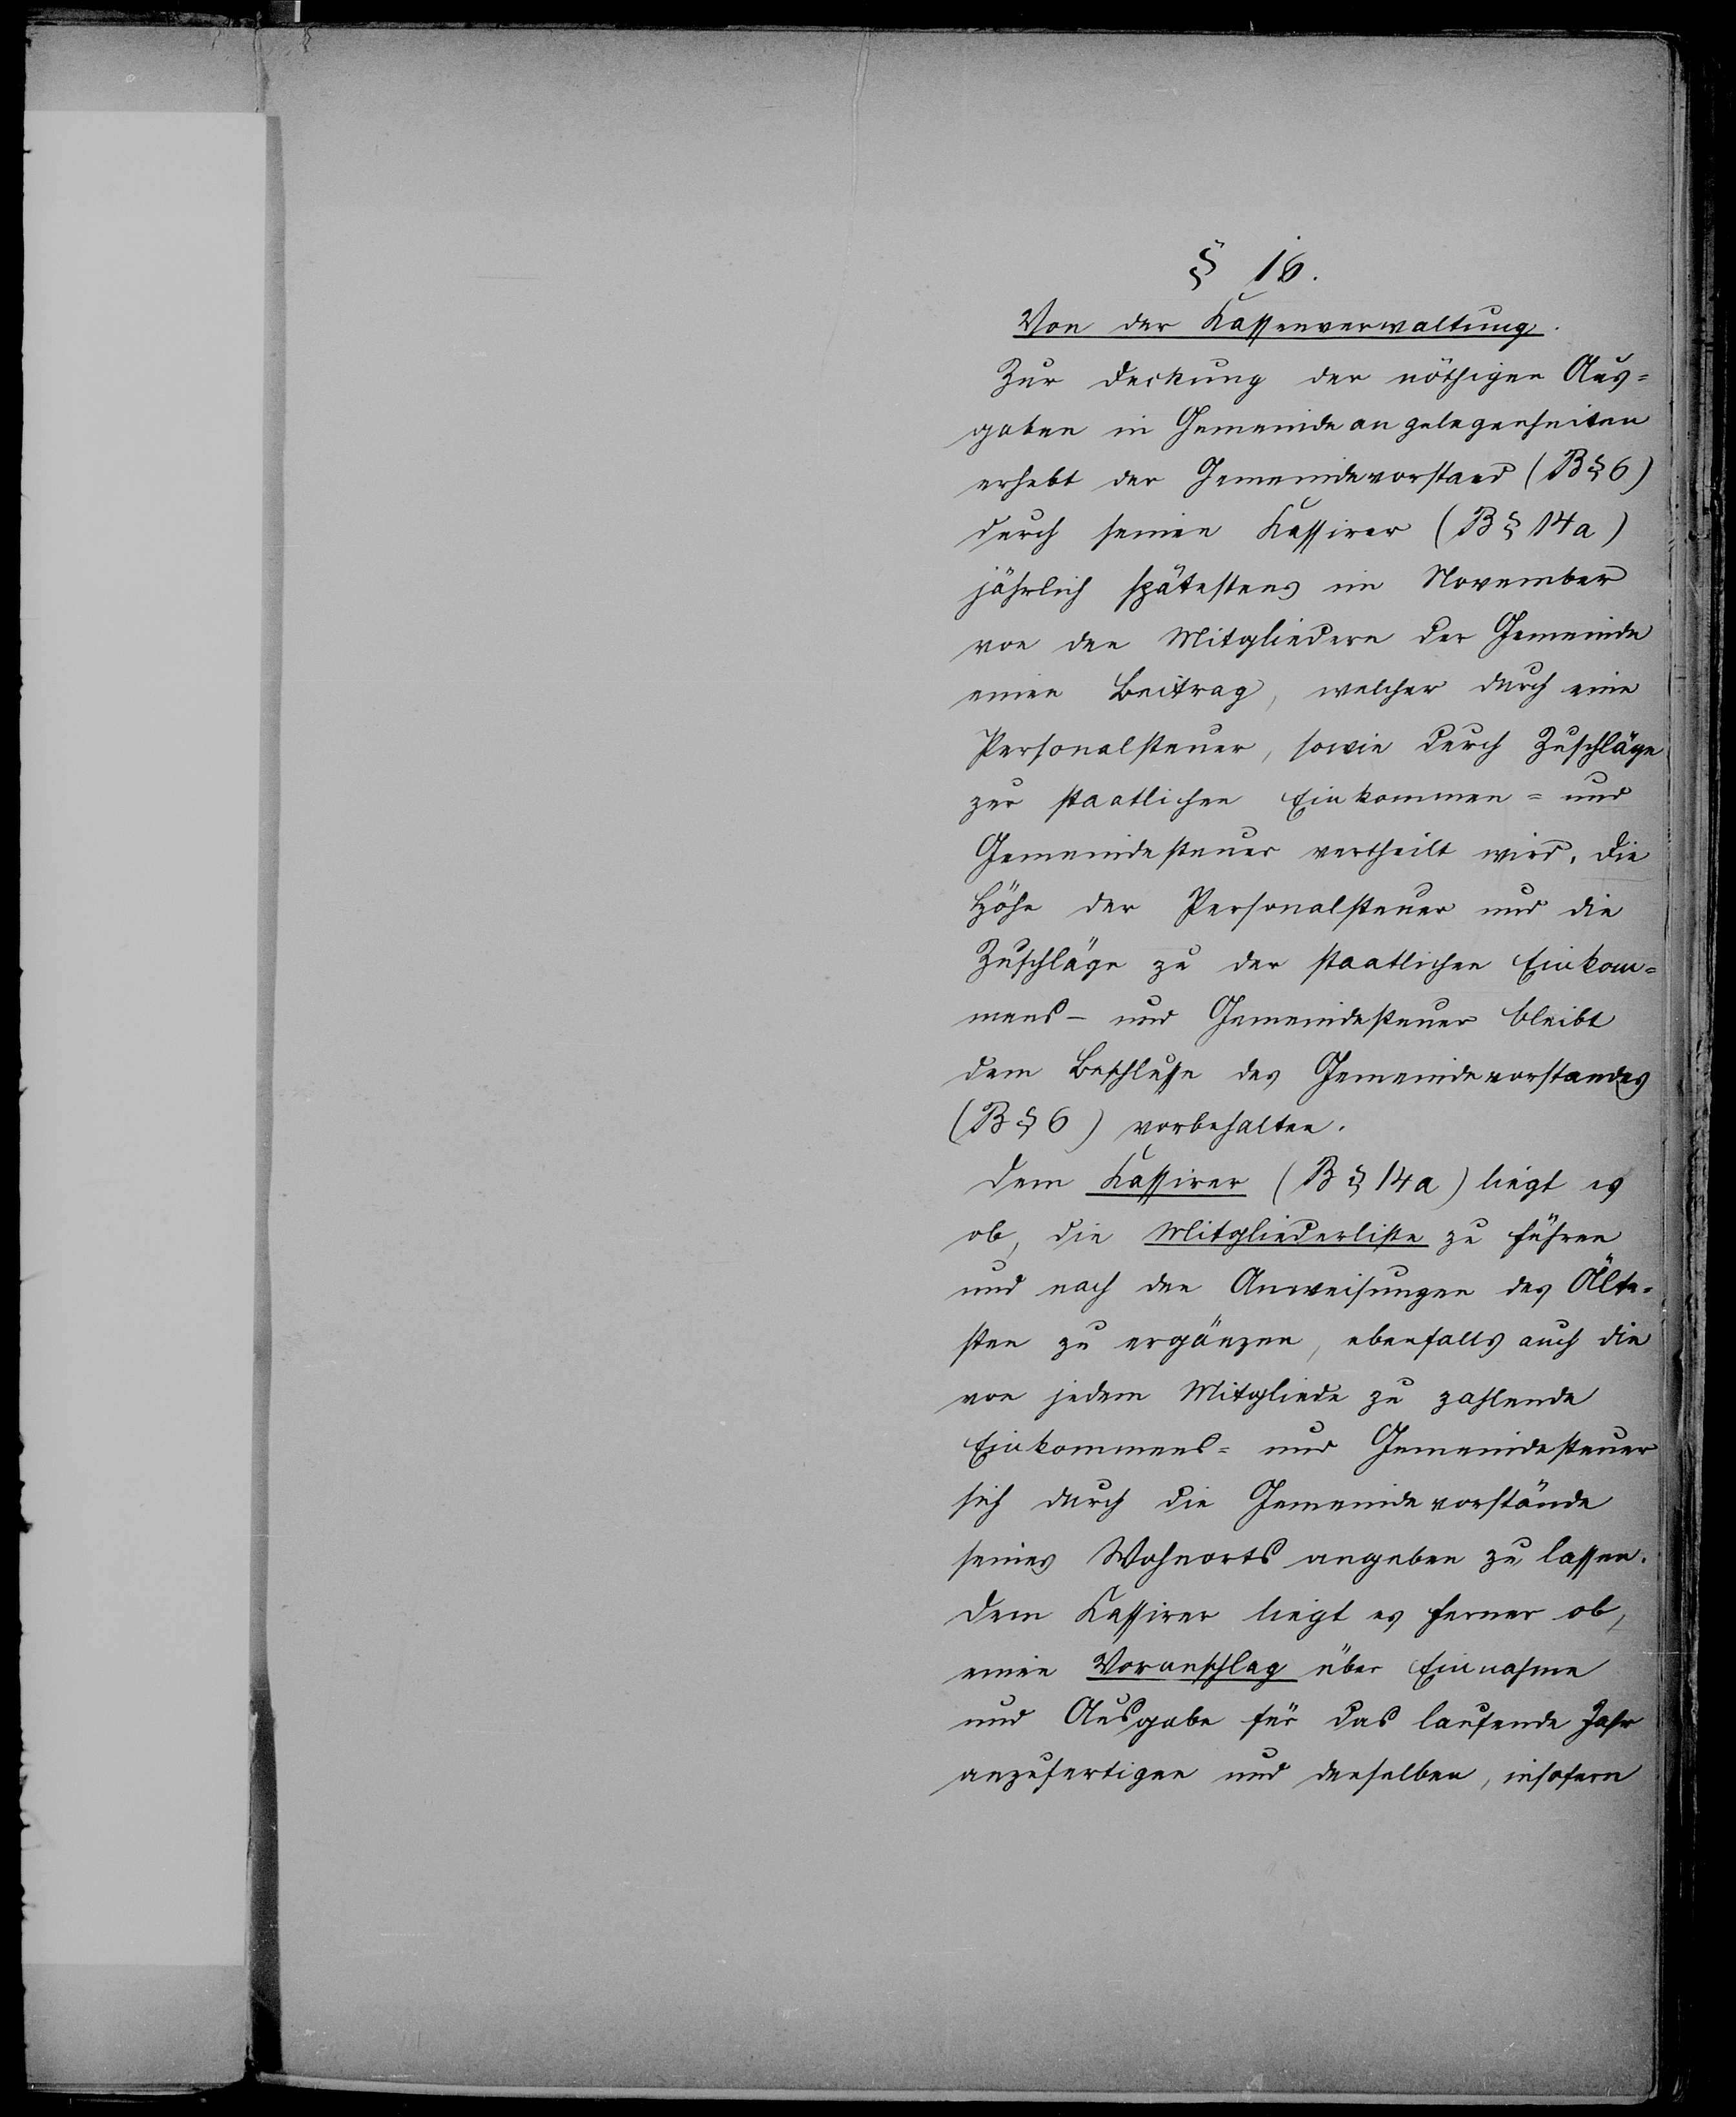 § 16.
Von der Kassenverwaltung.
Zur Deckung der nöthigen Aus=
gaben in Gemeindeangelegenheiten
erhebt der Gemeindevorstand (B § 6)
durch seinen Kassirer (B § 14a)
jährlich spätestens im November
von den Mitgliedern der Gemeinde
einen Beitrag, welcher durch eine
Personalsteuer, sowie durch Zuschläge
zur staatlichen Einkommen= und
Gemeindesteuer vertheilt wird. Die
Höhe der Personalsteuer und die
Zuschläge zu der staatlichen Einkom=
mens- und Gemeindesteuer bleibt
dem Beschlusse des Gemeindevorstandes
(B § 6) vorbehalten.
Dem Kassirer (B § 14a) liegt es
ob, die Mitgliederliste zu führen
und nach den Anweisungen des Älte=
sten zu ergänzen, ebenfalls auch die
von jedem Mitgliede zu zahlende
Einkommens= und Gemeindesteuer
sich durch die Gemeindevorstände
seines Wohnorts angeben zu lassen.
Dem Kassirer liegt es ferner ob,
einen Voranschlag über Einnahme
und Ausgabe für das laufende Jahr
anzufertigen und denselben, insofern